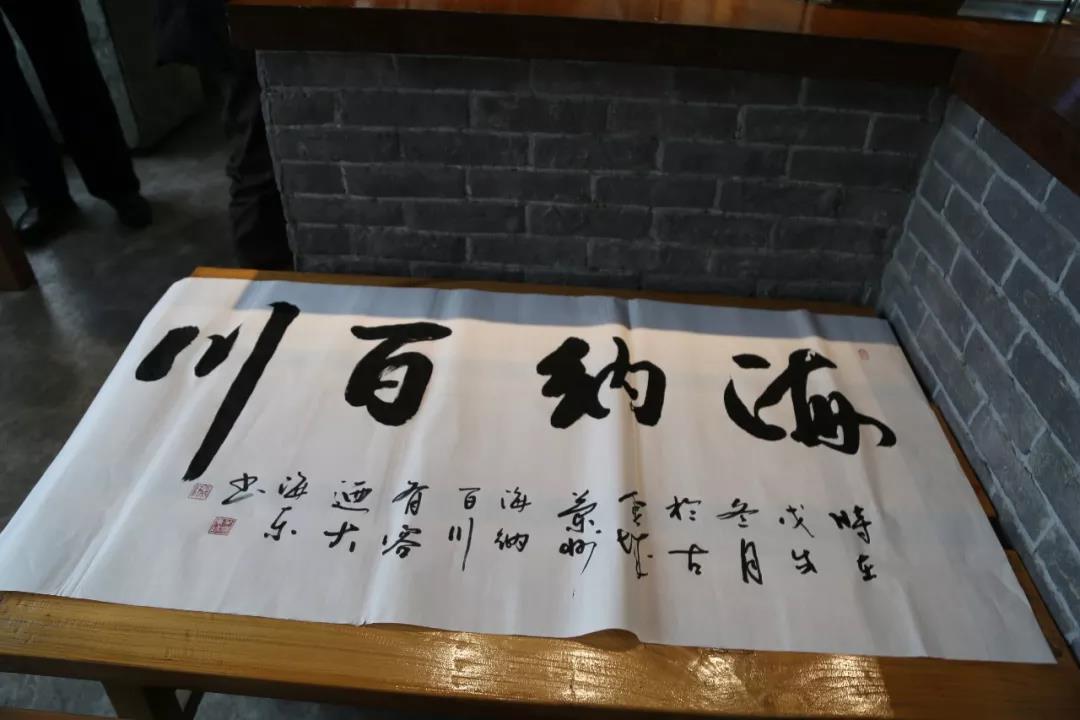 海纳百川
時在
戊戌
冬月
於古
金城
蘭州
海纳
百川
有容
迺大
海东
书